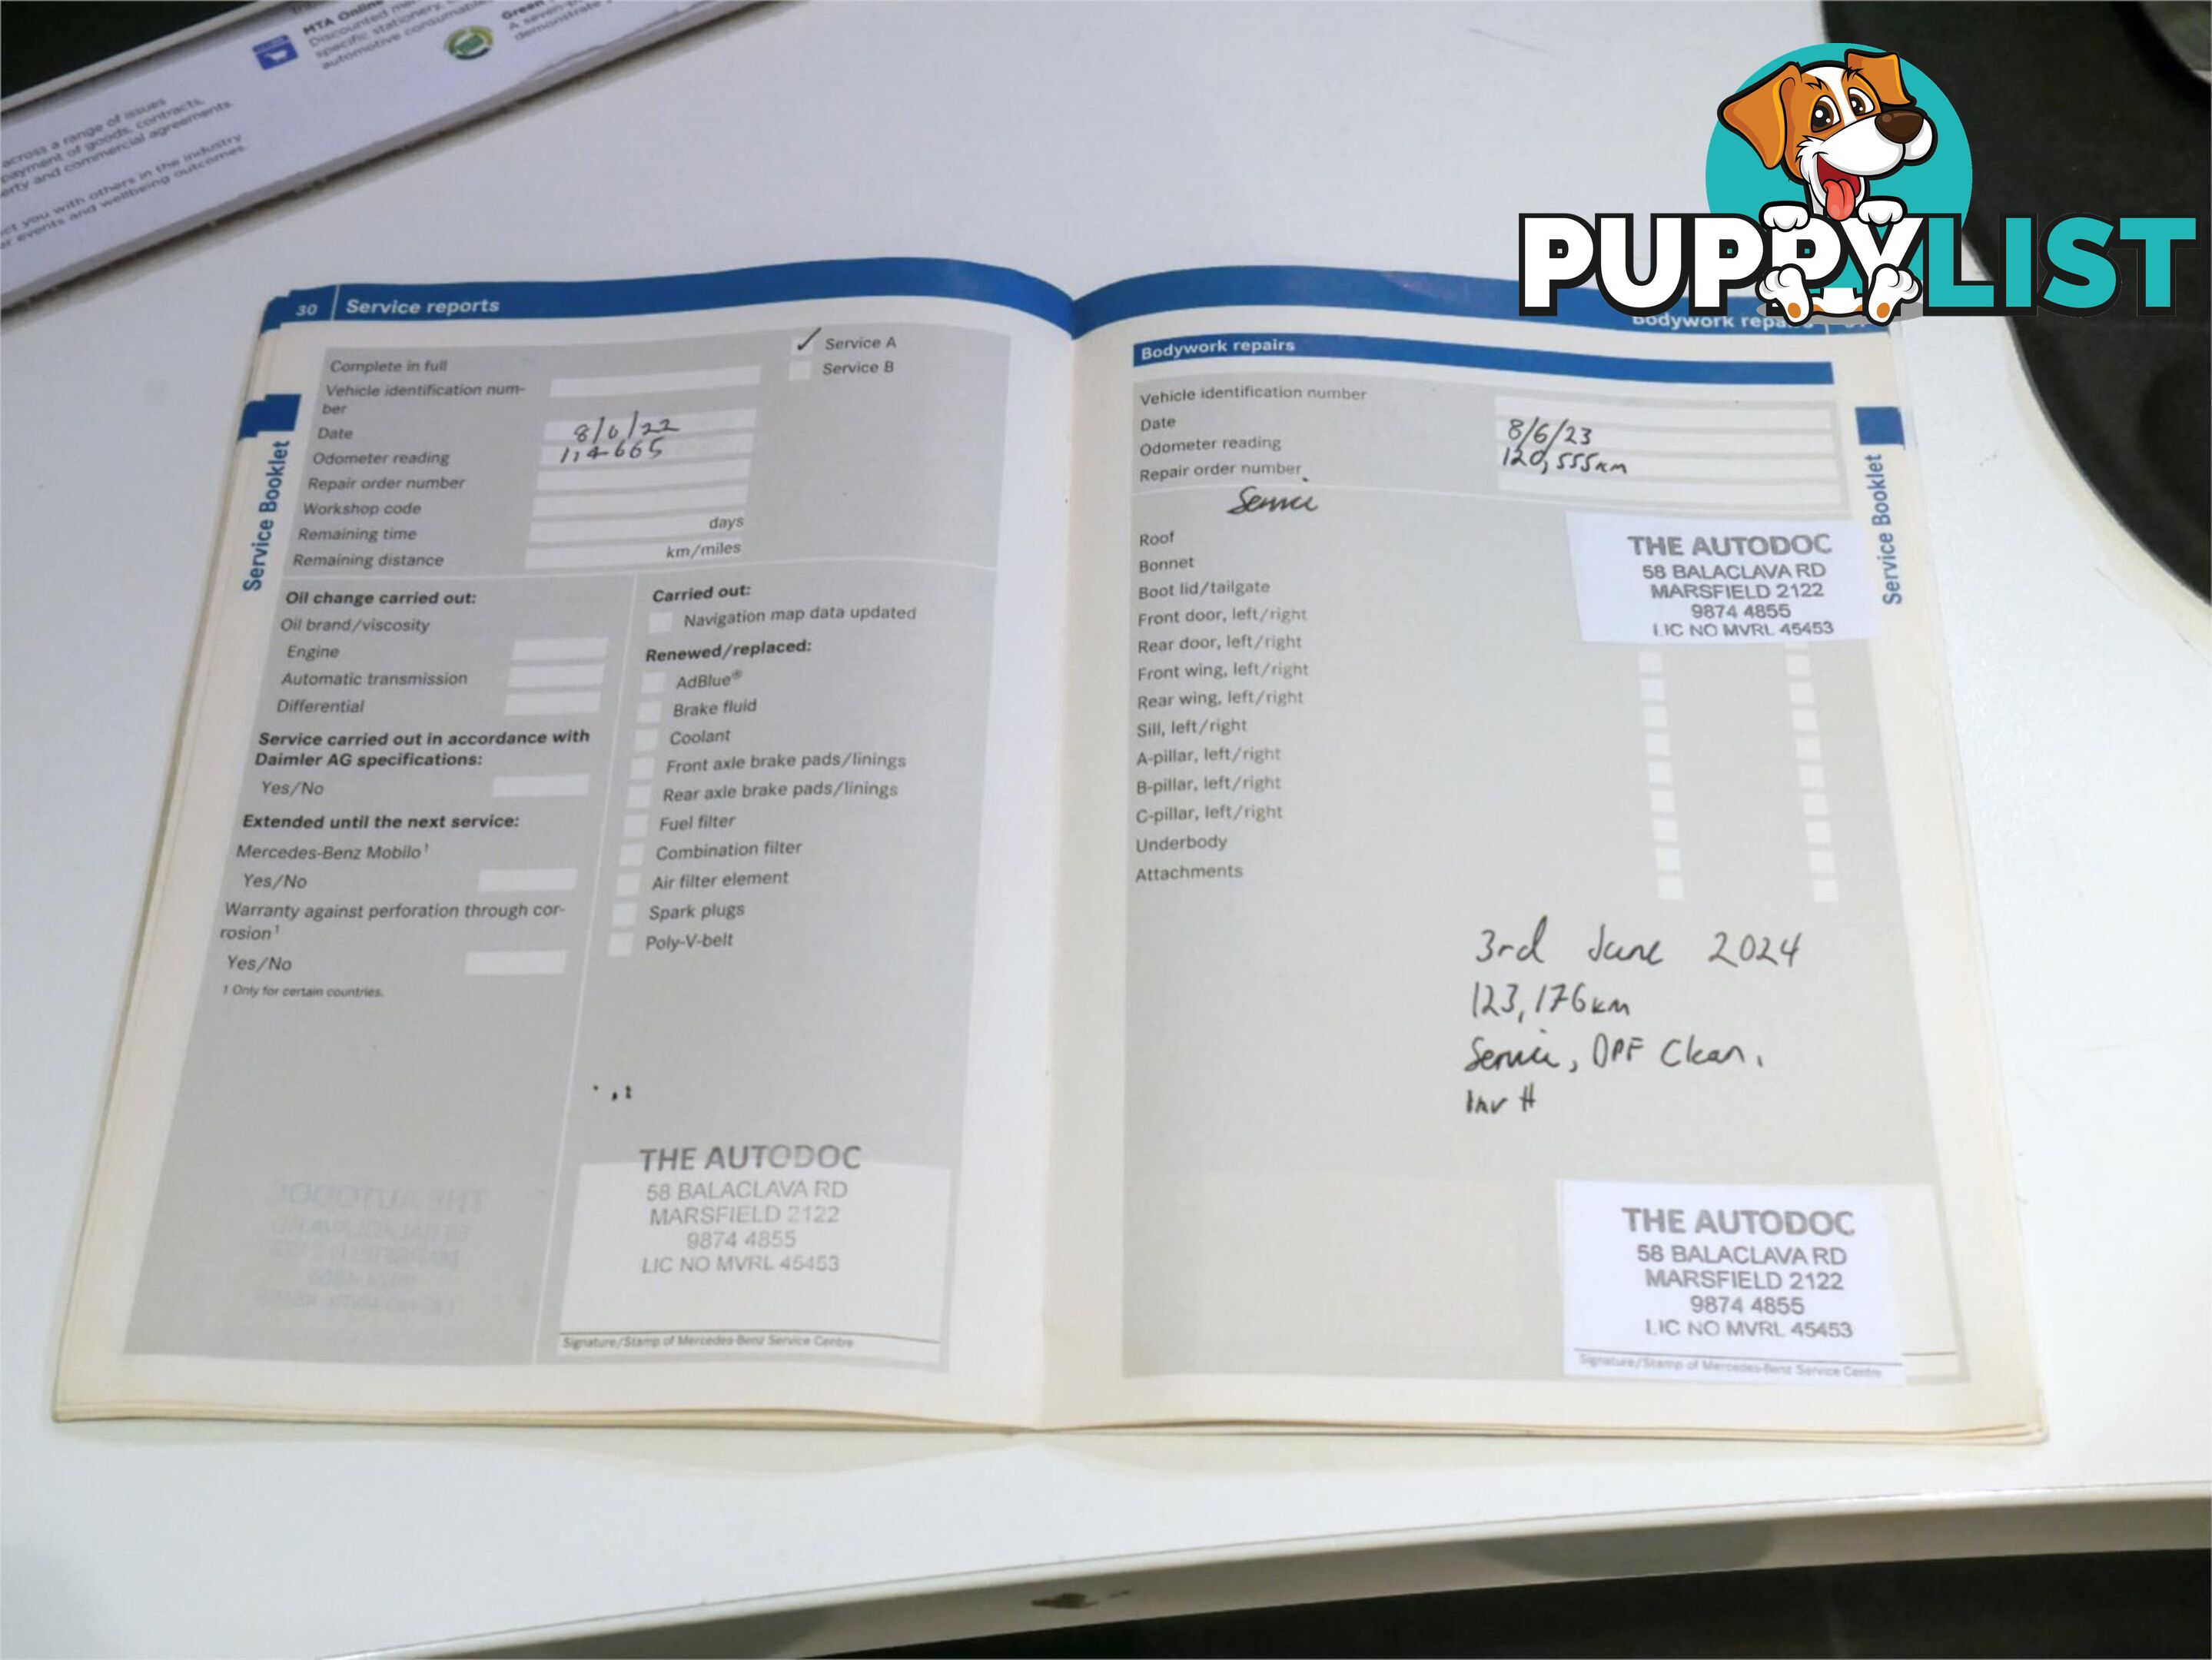 MTA Online
Discounted
specific stationery,
automotive consumables
Green
demonstrate
across a range of issues
payment of goods, contracts,
erty and commercial agreements.
ct you with others in the industry
er events and wellbeing outcomes.
PUPPYLIST
30 Service reports
Service Booklet
Complete in full
✓ Service A
Service B
Vehicle identification num-
ber
Date 8/6/22
Odometer reading 114665
Repair order number
Workshop code
Remaining time days
Remaining distance km/miles
Oil change carried out:
Oil brand/viscosity
Engine
Automatic transmission
Differential
Service carried out in accordance with
Daimler AG specifications:
Yes/No
Extended until the next service:
Mercedes-Benz Mobilo¹
Yes/No
Warranty against perforation through cor-
rosion¹
Yes/No
1 Only for certain countries.
Carried out:
Navigation map data updated
Renewed/replaced:
AdBlue®
Brake fluid
Coolant
Front axle brake pads/linings
Rear axle brake pads/linings
Fuel filter
Combination filter
Air filter element
Spark plugs
Poly-V-belt
THE AUTODOC
58 BALACLAVA RD
MARSFIELD 2122
9874 4855
LIC NO MVRL 45453
Signature/Stamp of Mercedes-Benz Service Centre
Bodywork repairs
Bodywork repairs
Service Booklet
Vehicle identification number
Date 8/6/23
Odometer reading 120,555km
Repair order number
Service
Roof
Bonnet
Boot lid/tailgate
Front door, left/right
Rear door, left/right
Front wing, left/right
Rear wing, left/right
Sill, left/right
A-pillar, left/right
B-pillar, left/right
C-pillar, left/right
Underbody
Attachments
THE AUTODOC
58 BALACLAVA RD
MARSFIELD 2122
9874 4855
LIC NO MVRL 45453
3rd June 2024
123,176km
Service, DPF Clean.
Inv #
THE AUTODOC
58 BALACLAVA RD
MARSFIELD 2122
9874 4855
LIC NO MVRL 45453
Signature/Stamp of Mercedes-Benz Service Centre